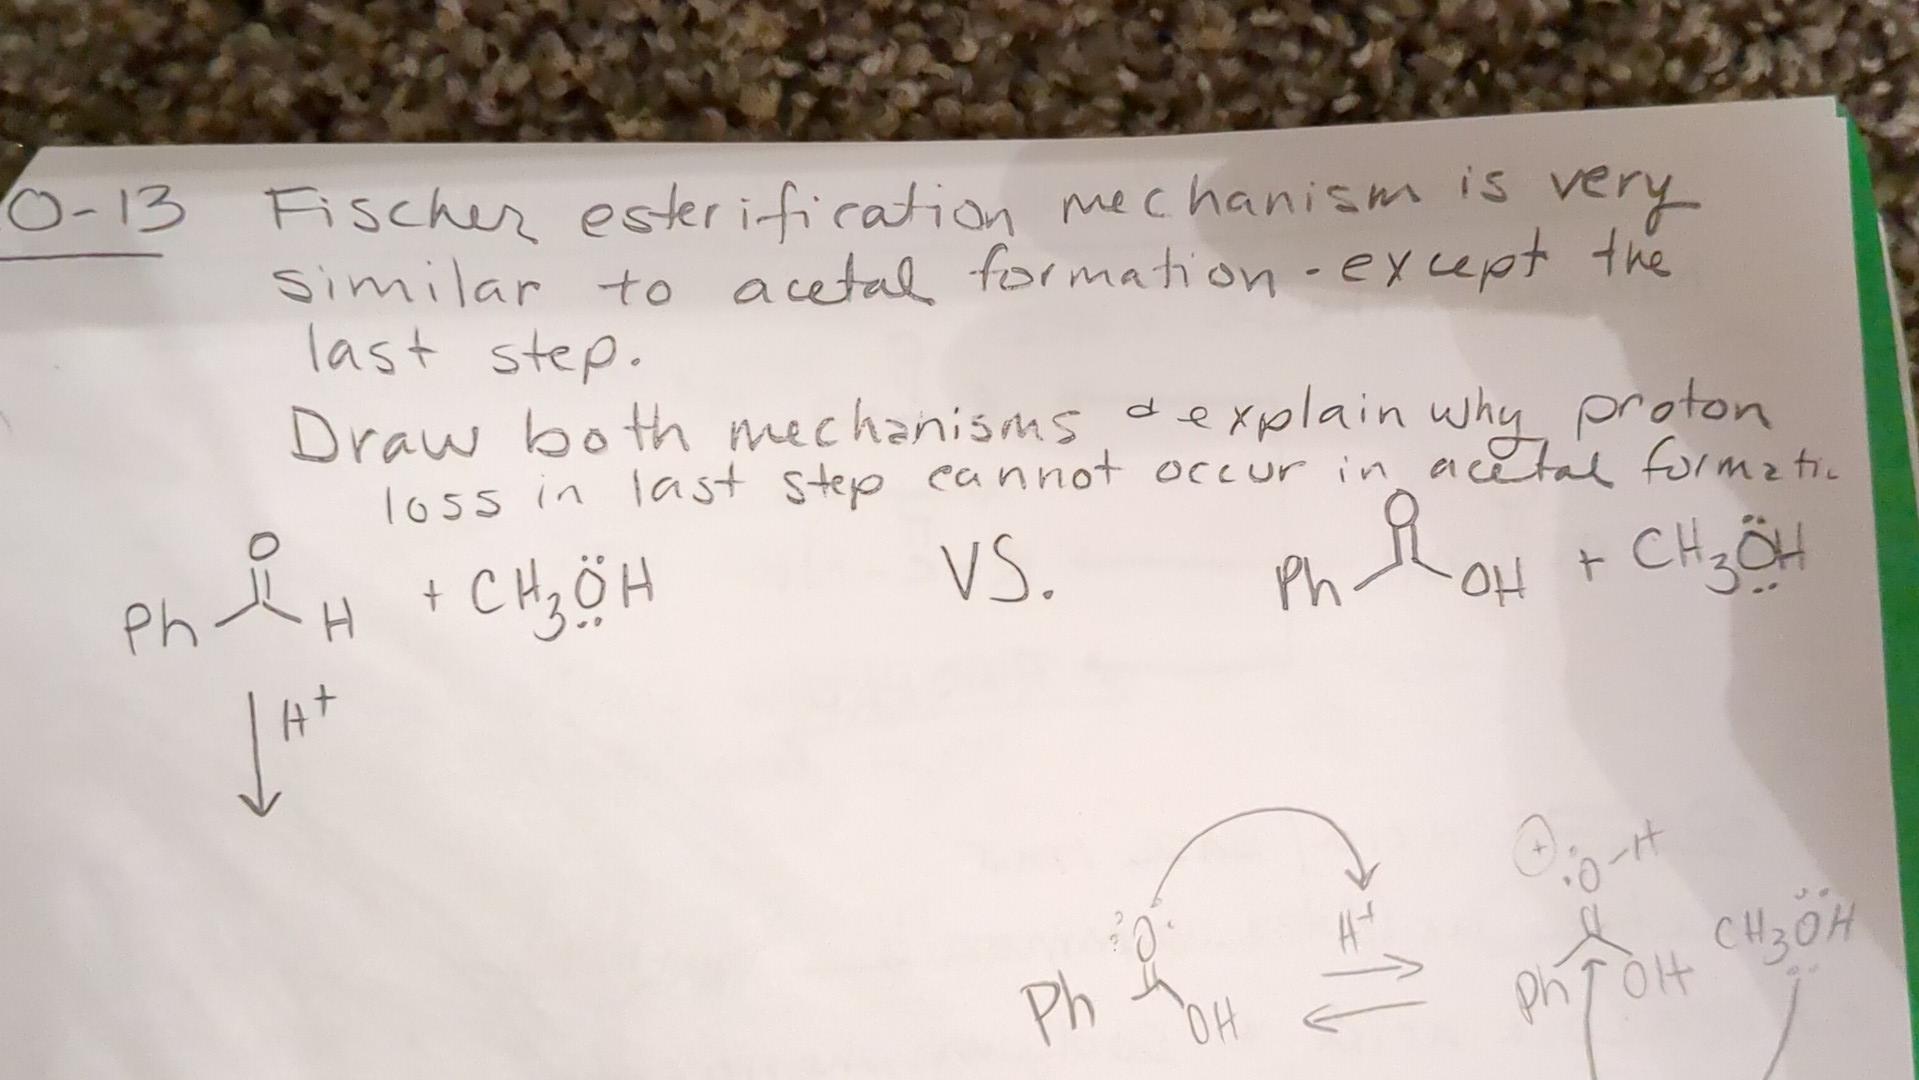 0-13 Fischer esterification mechanism is very
similar to acetal formation - except the
last step.
Draw both mechanisms & explain why proton
loss in last step cannot occur in acetal formatic
O O
Ph H + CH3ÖH VS. Ph OH + CH3ÖH
H+
+ :O-H
:O: H+ CH3ÖH
Ph OH Ph OH